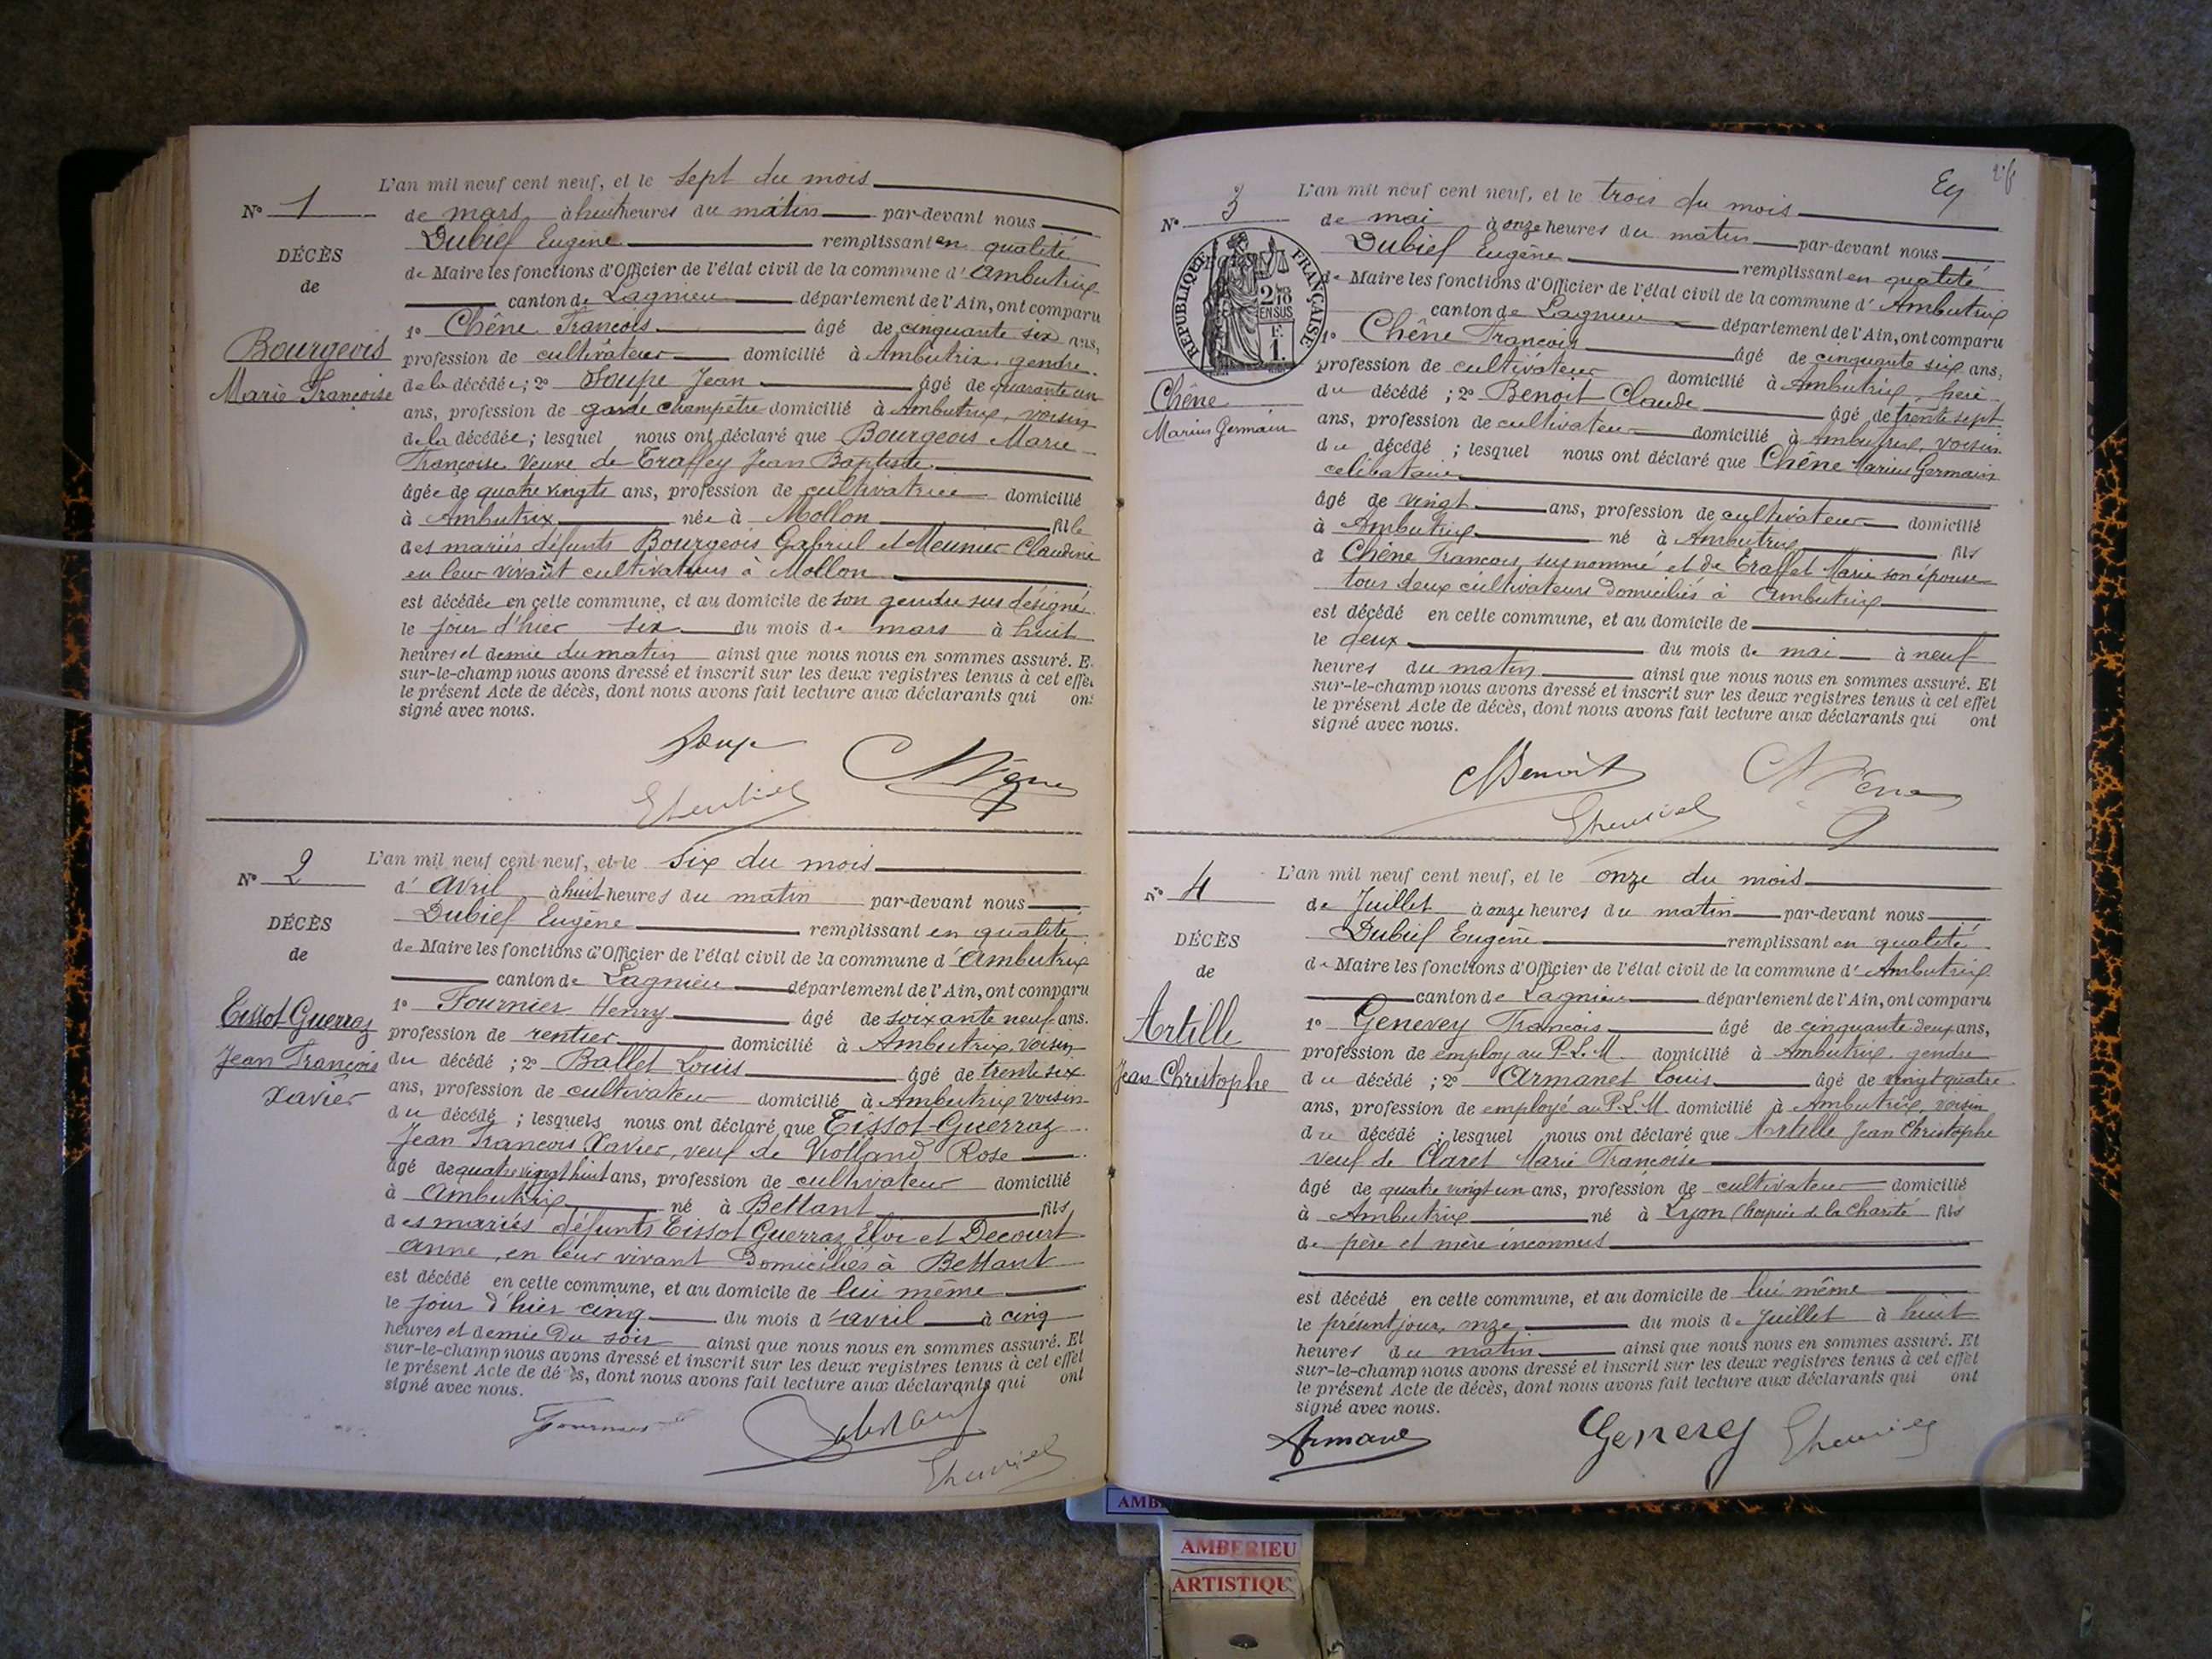 L'an mil neuf cent neuf, et le sept du mois
N° 1
de mars à huit heures du matin par-devant nous
Dubief Eugène remplissant en qualité
DÉCÈS
de Maire les fonctions d'Officier de l'état civil de la commune d'Ambutrix
de
canton de Lagnieu département de l'Ain, ont comparu
1° Chêne François âgé de cinquante six ans,
Bourgeois
profession de cultivateur domicilié à Ambutrix, gendre
Marie Françoise
de la décédée; 2° Soupe Jean âgé de quarante un
ans, profession de garde champêtre domicilié à Ambutrix, voisin
de la décédée; lesquel nous ont déclaré que Bourgeois Marie
Françoise Veuve de Traffey Jean Baptiste
âgée de quatre vingts ans, profession de cultivatrice domicilié
à Ambutrix née à Mollon fille
des mariés défunts Bourgeois Gabriel et Meunier Claudine
en leur vivant cultivateurs à Mollon
est décédée en cette commune, et au domicile de son gendre sus désigné
le jour d'hier six du mois de mars à huit
heures et demie du matin ainsi que nous nous en sommes assuré. E
sur-le-champ nous avons dressé et inscrit sur les deux registres tenus à cet effe
le présent Acte de décès, dont nous avons fait lecture aux déclarants qui on
signé avec nous.
Soupe
L'an mil neuf cent neuf, et le six du mois
N° 2
d'avril à huit heures du matin par-devant nous
Dubief Eugène remplissant en qualité
DÉCÈS
de Maire les fonctions d'Officier de l'état civil de la commune d'Ambutrix
de
canton de Lagnieu département de l'Ain, ont comparu
1° Fournier Henry âgé de soixante neuf ans.
Tissot-Guerraz
profession de rentier domicilié à Ambutrix, voisin
Jean François
du décédé; 2° Ballet Louis âgé de trente six
Xavier
ans, profession de cultivateur domicilié à Ambutrix voisin
du décédé; lesquels nous ont déclaré que Tissot-Guerraz
Jean François Xavier, veuf de Violland Rose
âgé de quatre vingt huit ans, profession de cultivateur domicilié
à Ambutrix né à Bettant fils
des mariés défunts Tissot Guerraz Eloi et Decourt
Anne, en leur vivant Domiciliés à Bettant
est décédé en cette commune, et au domicile de lui même
le jour d'hier cinq du mois d'avril à cinq
heures et demie du soir ainsi que nous nous en sommes assuré. Et
sur-le-champ nous avons dressé et inscrit sur les deux registres tenus à cet effet
le présent Acte de dé ès, dont nous avons fait lecture aux déclarants qui ont
signé avec nous.
Fournier
L'an mil neuf cent neuf, et le trois du mois
N° 3
de mai à onze heures du matin par-devant nous
Dubief Eugène remplissant en qualité
RÉPUBLIQUE FRANÇAISE
2/10 EN SUS
F. 1.
de Maire les fonctions d'Officier de l'état civil de la commune d'Ambutrix
canton de Lagnieu département de l'Ain, ont comparu
1° Chêne François âgé de cinquante six ans,
profession de cultivateur domicilié à Ambutrix, père
Chêne
du décédé; 2° Benoit Claude âgé de trente sept
Marius Germain
ans, profession de cultivateur domicilié à Ambutrix, voisin
du décédé; lesquel nous ont déclaré que Chêne Marius Germain
celibataire
âgé de vingt ans, profession de cultivateur domicilié
à Ambutrix né à Ambutrix fils
d Chêne François, susnommé et de Traffet Marie son épouse
tous deux cultivateurs domiciliés à Ambutrix
est décédé en cette commune, et au domicile de
le deux du mois de mai à neuf
heures du matin ainsi que nous nous en sommes assuré. Et
sur-le-champ nous avons dressé et inscrit sur les deux registres tenus à cet effet
le présent Acte de décès, dont nous avons fait lecture aux déclarants qui ont
signé avec nous.
Benoit
L'an mil neuf cent neuf, et le onze du mois
N° 4
de Juillet à onze heures du matin par-devant nous
Dubief Eugène remplissant en qualité
DÉCÈS
de Maire les fonctions d'Officier de l'état civil de la commune d'Ambutrix
de
canton de Lagnieu département de l'Ain, ont comparu
1° Genevey François âgé de cinquante-deux ans,
Artille
profession de employ au P-L.M. domicilié à Ambutrix, gendre
Jean-Christophe
du décédé; 2° Armanet Louis âgé de vingt quatre
ans, profession de employé au P.L.M. domicilié à Ambutrix, voisin
du décédé; lesquel nous ont déclaré que Artille Jean Christophe
veuf de Claret Marie Françoise
âgé de quatre vingt un ans, profession de cultivateur domicilié
à Ambutrix né à Lyon hospice de la Charité fils
de père et mère inconnus
est décédé en cette commune, et au domicile de lui même
le présent jour, onze du mois de Juillet à huit
heures du matin ainsi que nous nous en sommes assuré. Et
sur-le-champ nous avons dressé et inscrit sur les deux registres tenus à cet effet
le présent Acte de décès, dont nous avons fait lecture aux déclarants qui ont
signé avec nous.
Genevey
AMB
AMBERIEU
ARTISTIQU